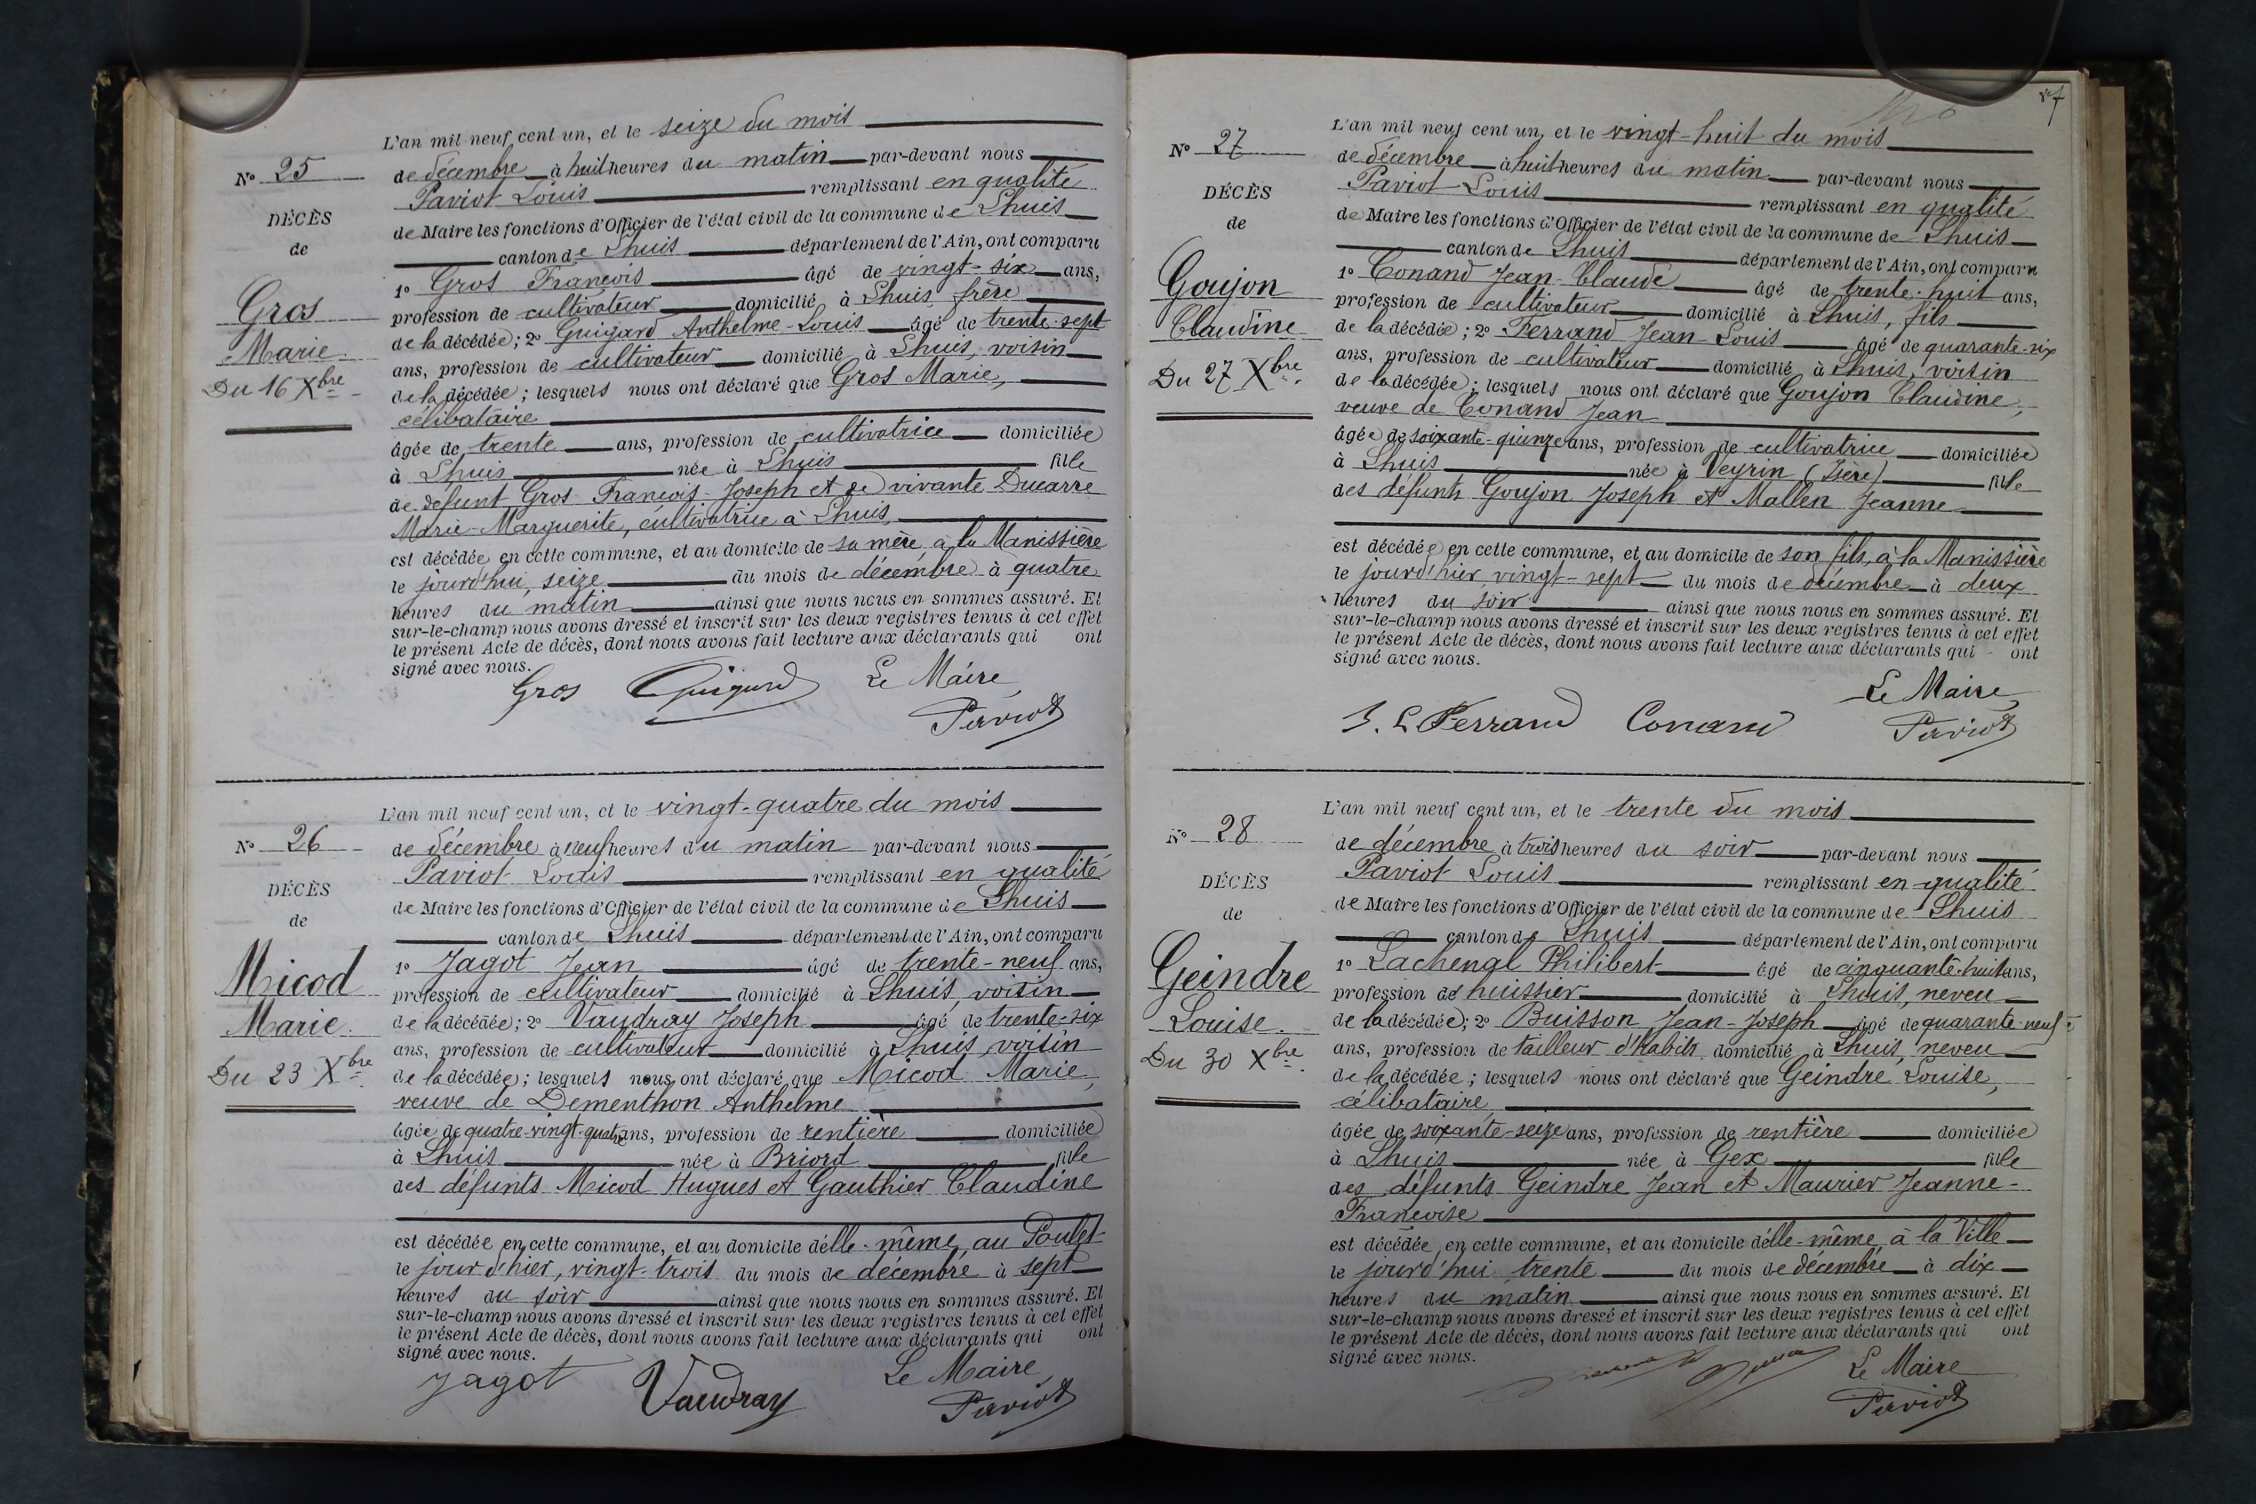 L'an mil neuf cent un, et le seize du mois
de décembre à huit heures du matin par-devant nous
Paviot Louis remplissant en qualité
de Maire les fonctions d'Officier de l'état civil de la commune de Lhuis
canton de Lhuis département de l'Ain, ont comparu
1º Gros François âgé de vingt-six ans,
profession de cultivateur domicilié à Lhuis, frère
de la décédée; 2º Guigard Anthelme-Louis âgé de trente-sept
ans, profession de cultivateur domicilié à Lhuis, voisin
de la décédée; lesquels nous ont déclaré que Gros Marie,
célibataire
âgée de trente ans, profession de cultivatrice domiciliée
à Lhuis née à Lhuis fille
de défunt Gros François-Joseph et de vivante Ducarre
Marie-Marguerite, cultivatrice à Lhuis,
est décédée en cette commune, et au domicile de sa mère, à la Manissière
le jourd'hui, seize du mois de décembre à quatre
heures du matin ainsi que nous nous en sommes assuré. Et
sur-le-champ nous avons dressé et inscrit sur les deux registres tenus à cet effet
le présent Acte de décès, dont nous avons fait lecture aux déclarants qui ont
signé avec nous.
Gros Guigard Le Maire
Paviot
Nº 25
DÉCÈS
de
Gros
Marie
Du 16 Xbre
L'an mil neuf cent un, et le vingt-quatre du mois
de décembre à neuf heures du matin par-devant nous
Paviot Louis remplissant en qualité
de Maire les fonctions d'Officier de l'état civil de la commune de Lhuis
canton de Lhuis département de l'Ain, ont comparu
1º Jagot Jean âgé de trente-neuf ans,
profession de cultivateur domicilié à Lhuis, voisin
de la décédée; 2º Vaudray Joseph âgé de trente-six
ans, profession de cultivateur domicilié à Lhuis, voisin
de la décédée; lesquels nous ont déclaré que Micod Marie,
veuve de Dementhon Anthelme
âgée de quatre-vingt-quatre ans, profession de rentière domiciliée
à Lhuis née à Briord fille
des défunts Micod Hugues et Gauthier Claudine
est décédée en cette commune, et au domicile d'elle-même, au Poulet
le jour d'hier, vingt-trois du mois de décembre à sept
heures du soir ainsi que nous nous en sommes assuré. Et
sur-le-champ nous avons dressé et inscrit sur les deux registres tenus à cet effet
le présent Acte de décès, dont nous avons fait lecture aux déclarants qui ont
signé avec nous.
Jagot Vaudray Le Maire
Paviot
Nº 26
DÉCÈS
de
Micod
Marie.
Du 23 Xbre
L'an mil neuf cent un, et le vingt-huit du mois
de décembre à huit heures du matin par-devant nous
Paviot Louis remplissant en qualité
de Maire les fonctions d'Officier de l'état civil de la commune de Lhuis
canton de Lhuis département de l'Ain, ont comparu
1º Conand Jean-Claude âgé de trente-huit ans,
profession de cultivateur domicilié à Lhuis, fils
de la décédée; 2º Ferrand Jean-Louis âgé de quarante-six
ans, profession de cultivateur domicilié à Lhuis, voisin
de la décédée; lesquels nous ont déclaré que Goujon Claudine,
veuve de Conand Jean
âgée de soixante-quinze ans, profession de cultivatrice domiciliée
à Lhuis née à Veyrin (Isère) fille
des défunts Goujon Joseph et Mallen Jeanne
est décédée en cette commune, et au domicile de son fils, à la Manissière
le jourd'hier, vingt-sept du mois de décembre à deux
heures du soir ainsi que nous nous en sommes assuré. Et
sur-le-champ nous avons dressé et inscrit sur les deux registres tenus à cet effet
le présent Acte de décès, dont nous avons fait lecture aux déclarants qui ont
signé avec nous.
Le Maire
J. L Ferrand Conand Paviot
Nº 27
DÉCÈS
de
Goujon
Claudine
Du 27 Xbre
L'an mil neuf cent un, et le trente du mois
de décembre à trois heures du soir par-devant nous
Paviot Louis remplissant en qualité
de Maire les fonctions d'Officier de l'état civil de la commune de Lhuis
canton de Lhuis département de l'Ain, ont comparu
1º Lachenal Philibert âgé de cinquante-huit ans,
profession de huissier domicilié à Lhuis, neveu
de la décédée; 2º Buisson Jean-Joseph âgé de quarante-neuf
ans, profession de tailleur d'habits domicilié à Lhuis, neveu
de la décédée; lesquels nous ont déclaré que Geindre Louise,
célibataire
âgée de soixante-seize ans, profession de rentière domiciliée
à Lhuis née à Gex fille
des défunts Geindre Jean et Maurier Jeanne-
Françoise
est décédée en cette commune, et au domicile d'elle-même, à la Ville
le jourd'hui trente du mois de décembre à dix
heures du matin ainsi que nous nous en sommes assuré. Et
sur-le-champ nous avons dressé et inscrit sur les deux registres tenus à cet effet
le présent Acte de décès, dont nous avons fait lecture aux déclarants qui ont
signé avec nous.
Le Maire
Paviot
Nº 28
DÉCÈS
de
Geindre
Louise.
Du 30 Xbre